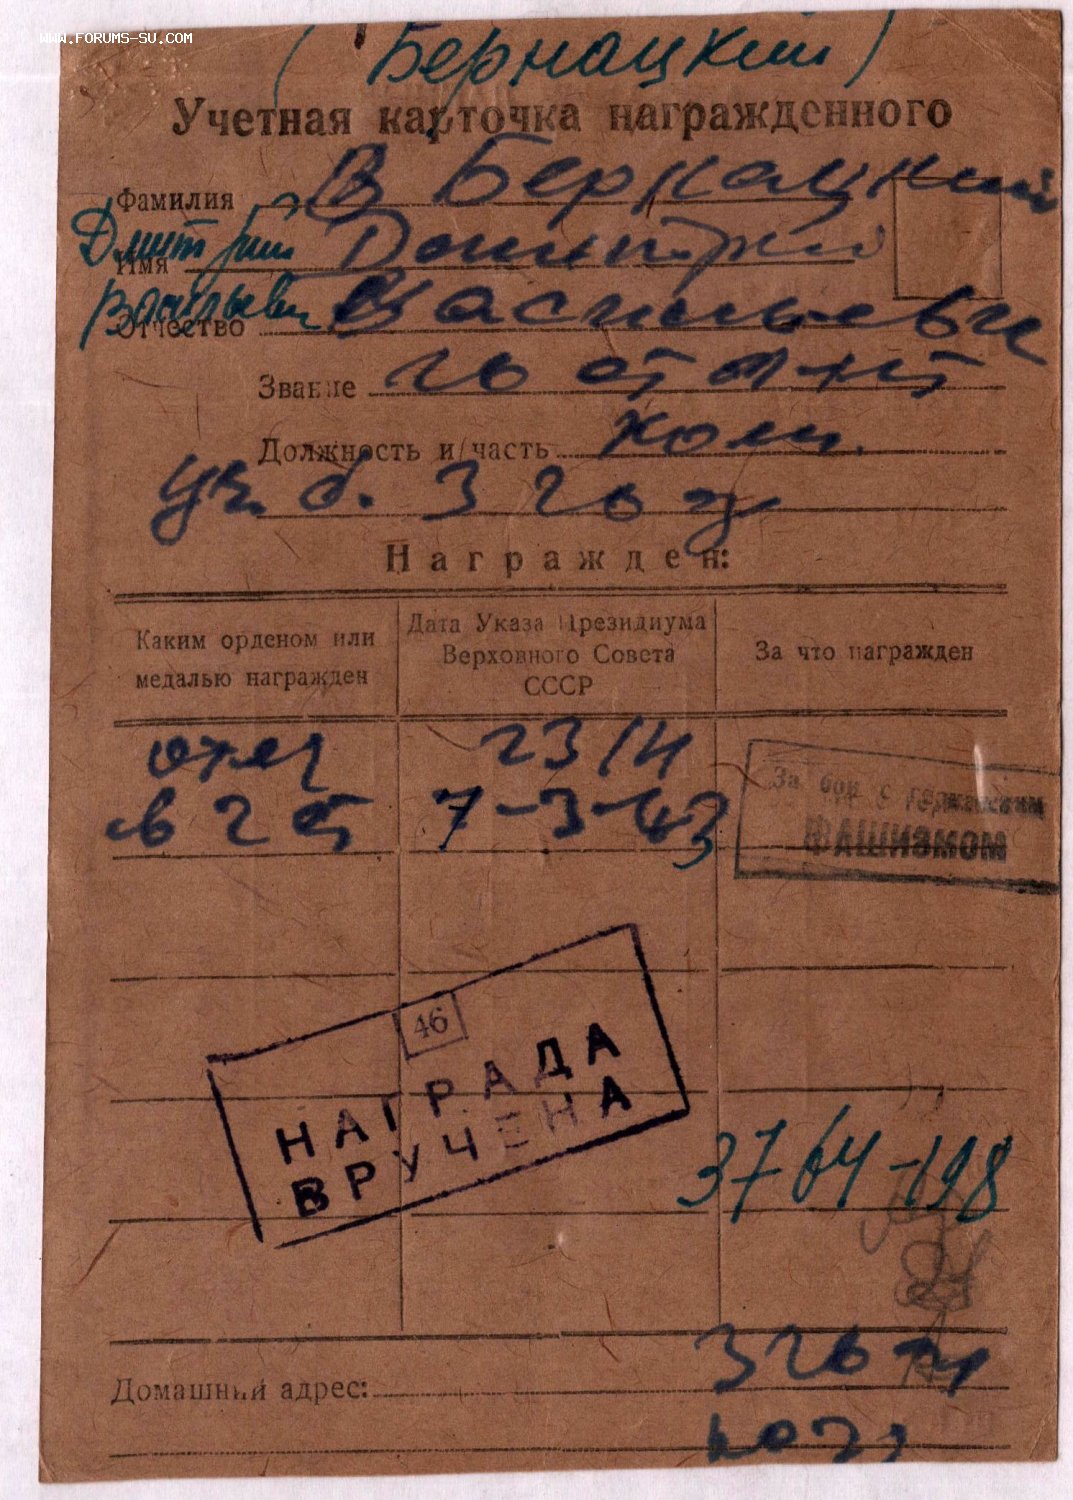 WWW.FORUMS-SU.COM
(Бернацкий)
Учетная карточка награжденного
Фамилия В Бернацкий
Дмитрий
Имя Дмитрий
Васильеви
Отчество Васильеви
Звание гв ст л-нт
Должность и часть ком.
уч. б. 3 гв
Награжден:
Каким орденом или медалью награжден
Дата Указа Президиума Верховного Совета СССР
За что награжден
отеч 23/Н
в 2 ст 7-3-43
За бои с германским
ФАШИЗМОМ
46
НАГРАДА
ВРУЧЕНА
3764-198
3 гв
Домашний адрес: